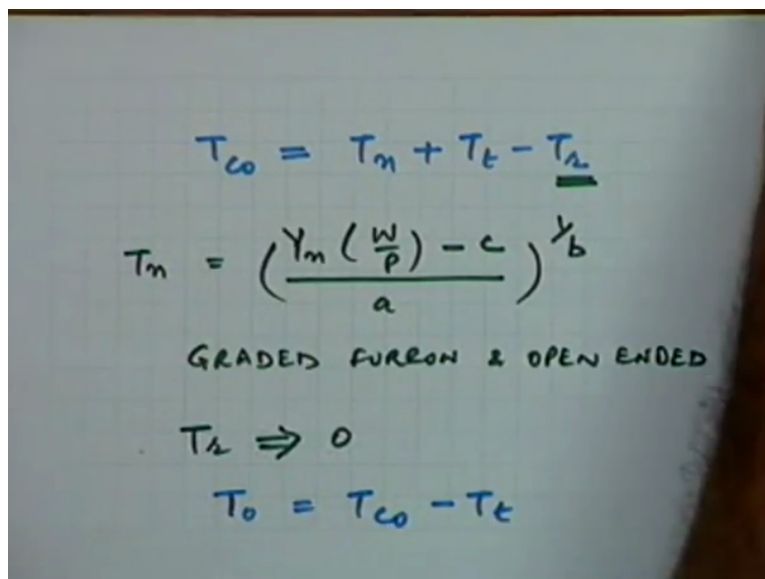 T_co = T_n + T_t - T_r
T_n = (Y_n (W/P) - c / a)^1/b
GRADED FURROW & OPEN ENDED
T_r ⇒ 0
T_o = T_co - T_t